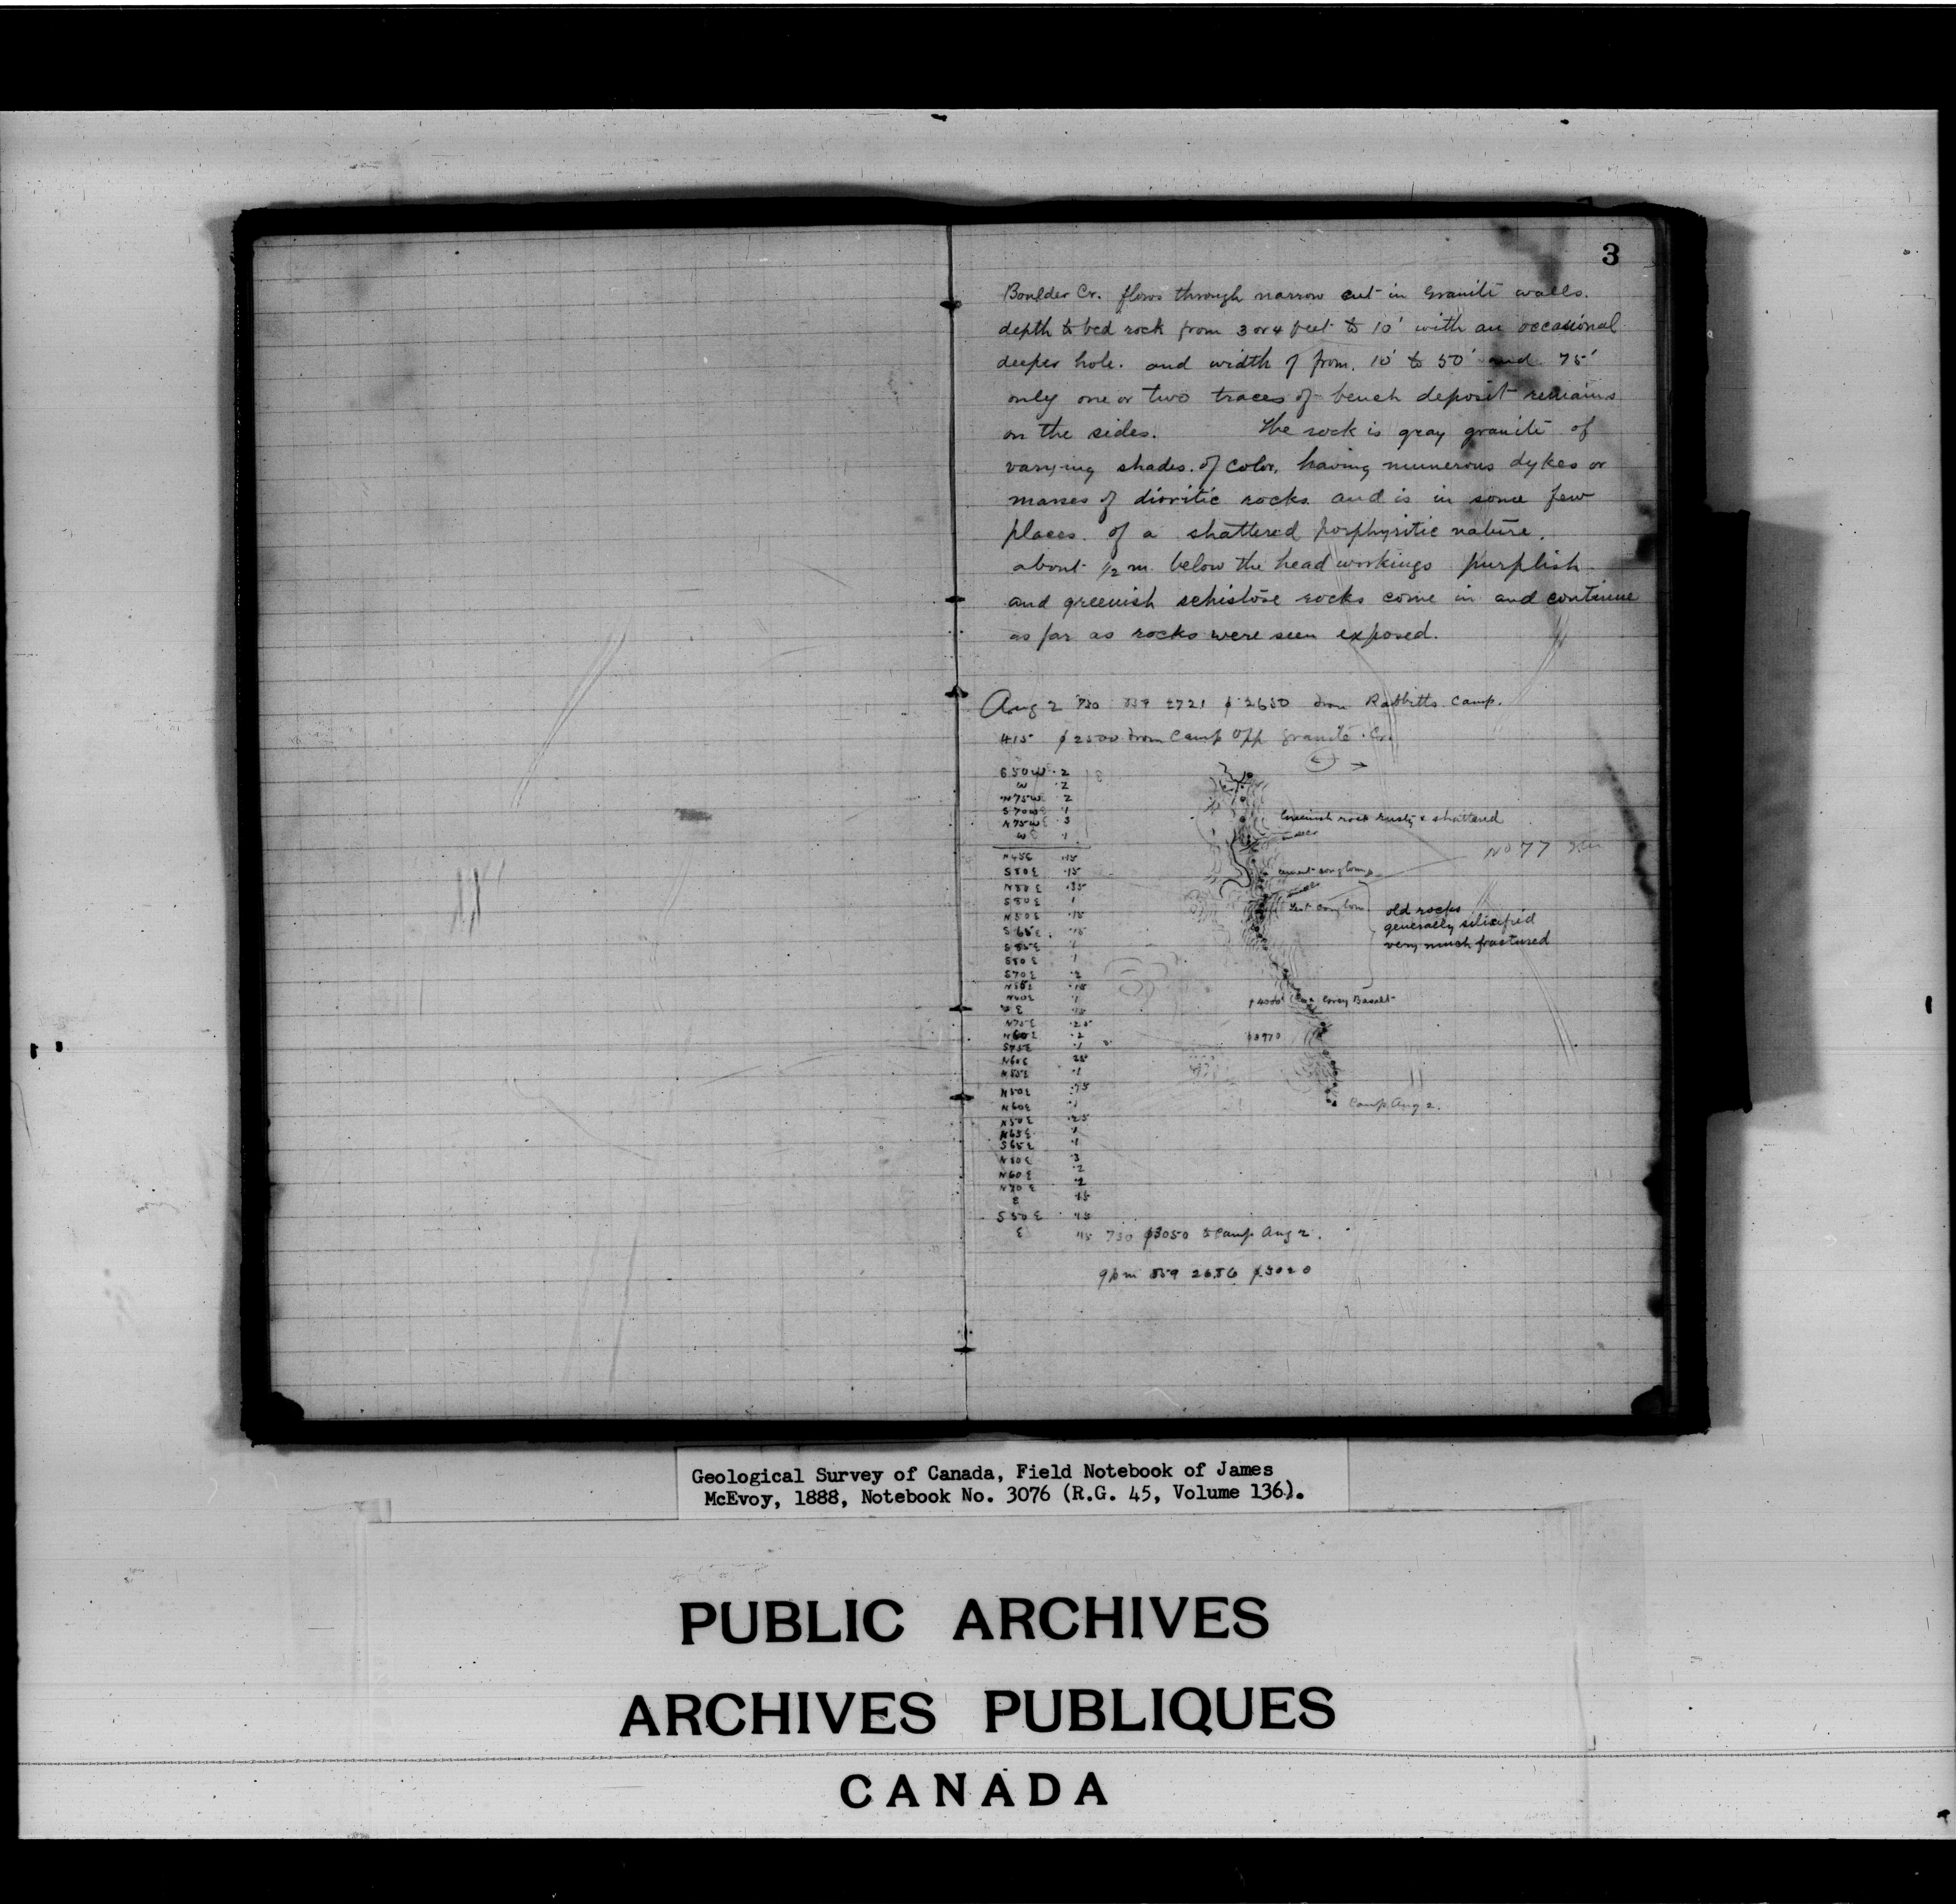 3
Boulder Cr. flows through narrow cut in Granite walls.
depth to bed rock from 3 or 4 feet to 10' with an occasional
deeper hole. and width of from. 10' to 50' and 75'
only one or two traces of bench deposit remains
on the sides. The rock is gray granite of
varying shades of color, having numerous dykes or
masses of dioritic rocks and is in some few
places of a shattered porphyritic nature.
about 1/2 m. below the head workings purplish
and greenish schistose rocks come in and continue
as far as rocks were seen exposed.
Aug 2 730 2721 2650 from Rabbitts Camp.
415 2500 from Camp Opp Granite Cr.
S50W .2
W .2
N75W 2
S70W .1
N75W
W .1
N45E .15
S80E .15
N80E
S80E 1
N50E .15
S65E .15
1
S80E 1
S70E .2
.15
N40E .1
E
N75E .25
N60E .2
S75E .1
N60E
.1
N50E
N60E .1
N50E .25
N65E .1
S65E .1
N80E .3
N60E .2
N70E .2
E .15
S50E
E
Greenish rock rusty & shattered
No 77
old rocks
generally silicified
very much fractured
4000 Grey Basalt
3970
Camp Aug 2.
730 3050 to Camp Aug 2.
9pm 2686 3020
Geological Survey of Canada, Field Notebook of James
McEvoy, 1888, Notebook No. 3076 (R.G. 45, Volume 136).
PUBLIC ARCHIVES
ARCHIVES PUBLIQUES
CANADA